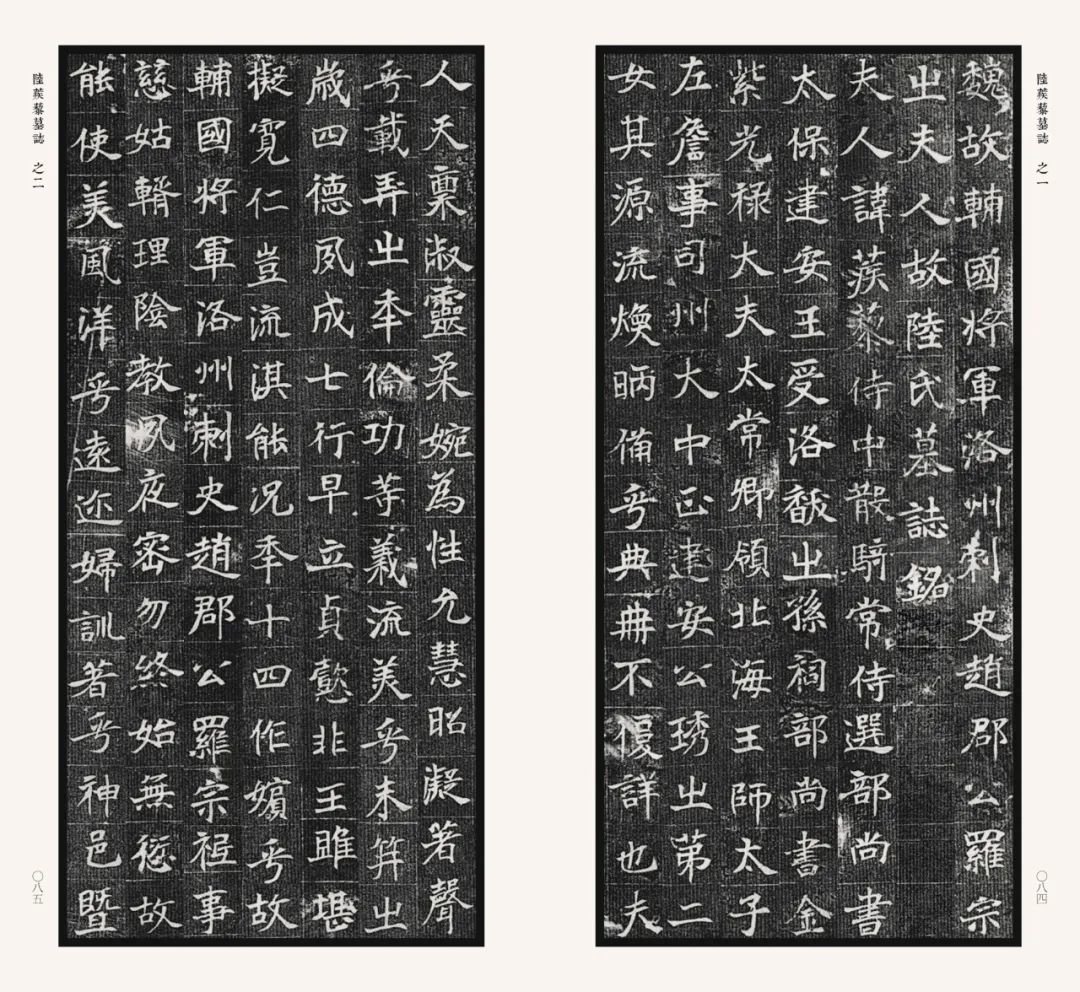 陸蒺藜墓誌 之一
魏故輔國將軍洛州刺史趙郡公羅宗
之夫人故陸氏墓誌銘
夫人諱蒺藜侍中散騎常侍選部尚書
太保建安王受洛跋之孫祠部尚書金
紫光祿大夫太常卿領北海王師太子
左詹事司州大中正建安公琇之第二
女其源流煥昞備乎典冊不復詳也夫
〇八四
人天稟淑靈柔婉為性允慧昭凝著聲
乎載弄之年倫功等義流美乎未笄之
歲四德夙成七行早立貞懿非王雎堪
擬寬仁豈流淇能況年十四作嬪乎故
輔國將軍洛州刺史趙郡公羅宗祗事
慈姑緝理陰教夙夜密勿終始無愆故
能使美風洋乎遠迩婦訓著乎神邑暨
陸蒺藜墓誌 之二
〇八五